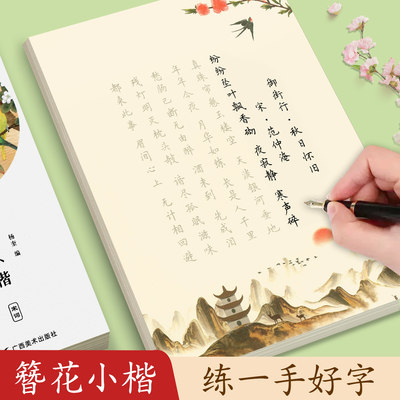 御街行·秋日怀旧
宋·范仲淹
纷纷坠叶飘香砌 夜寂静 寒声碎
真珠帘卷玉楼空 天淡银河垂地
年年今夜 月华如练 长是人千里
愁肠已断无由醉 酒未到 先成泪
残灯明灭枕头欹 谙尽孤眠滋味
都来此事 眉间心上 无计相回避
楷
宋词
广西美术出版社
簪花小楷
练一手好字